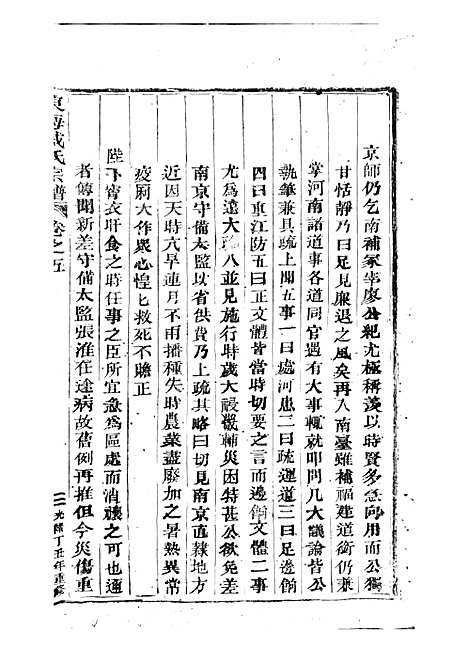 京師仍乞南補冢宰廖公紀尤極稱羨以時賢多急向用而公獨
甘恬靜乃曰足見廉退之風矣再入南臺雖補福建道銜仍兼
掌河南諸道事各道同官遇有大事輒就叩問凡大議論皆公
執筆兼具疏上聞五事一曰處河患二曰疏運道三曰足邊餉
四曰重江防五曰正文體皆當時切要之言而邊餉文體二事
尤為遠大 並見施行時歲大祲畿輔災困特甚公欲免差
南京守備太監以省供費乃上疏其略曰切見南京直隸地方
近因天時亢旱連月不雨播種失時農業盡廢加之暑熱異常
疫厲大作眾心惶匕救死不贍正
陛下宵衣旰食之時任事之臣所宜急為區處而消禳之可也通
者傳聞新差守備太監張淮在途病故舊例再推但今災傷重
東海臧氏宗譜 卷之五
三 光緒丁丑年重修